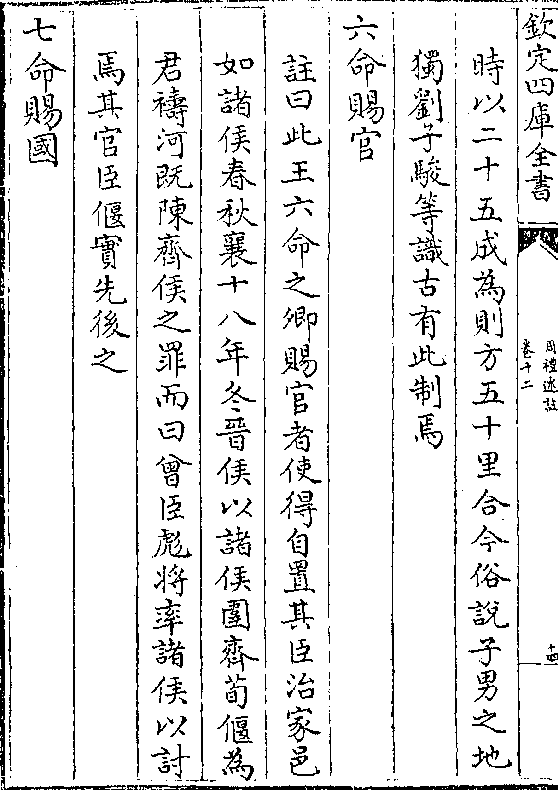 欽定四庫全書
周禮述註
卷十二
十四
時以二十五成為則方五十里合今俗說子男之地
獨劉子駿等識古有此制焉
六命賜官
註曰此王六命之卿賜官者使得自置其臣治家邑
如諸侯春秋襄十八年冬晉侯以諸侯圍齊荀偃為
君禱河既陳齊侯之罪而曰曾臣彪將率諸侯以討
焉其官臣偃實先後之
七命賜國